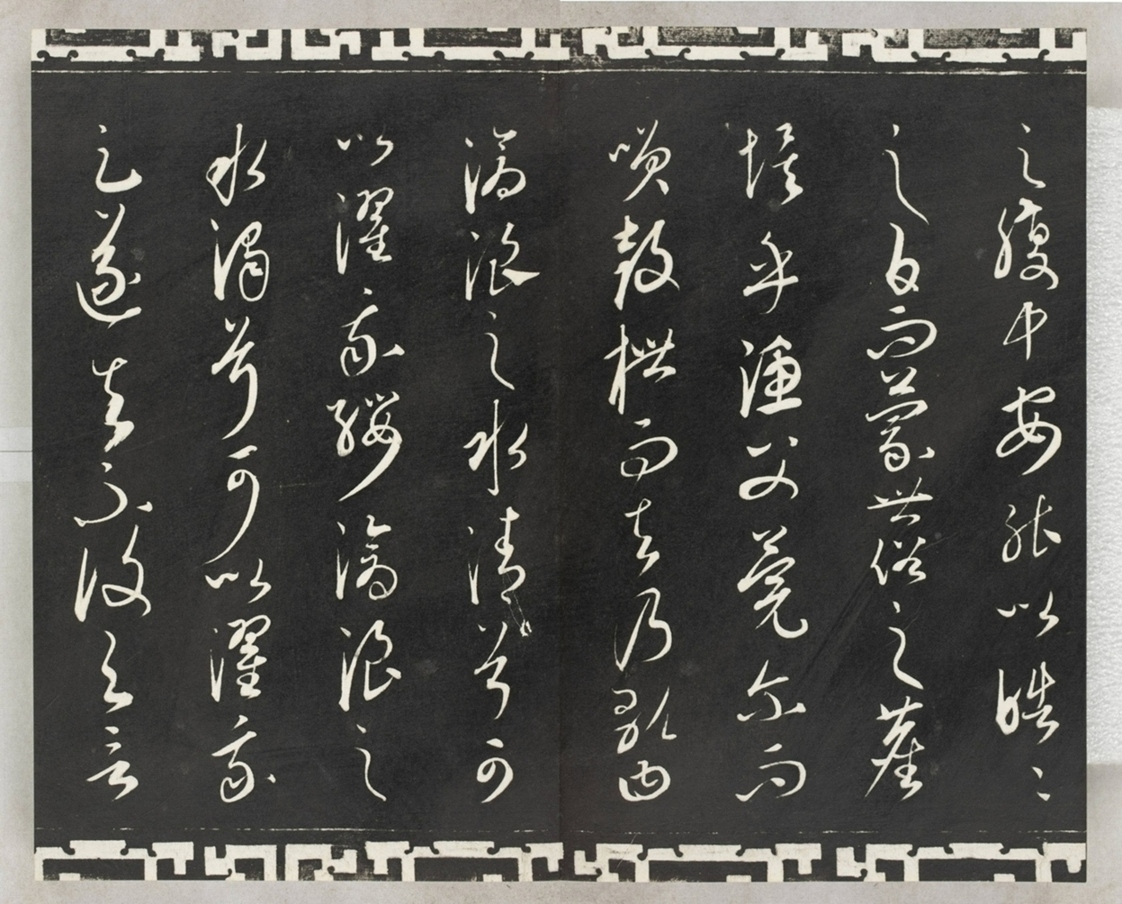 之腹中安能以皓〻
之白而蒙世俗之塵
埃乎漁父莞尔而
咲鼓枻而去乃歌曲
滄浪之水清兮可
以濯我纓滄浪之
水濁兮可以濯我
足遂去不復与言